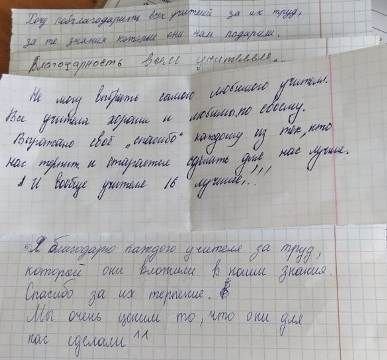 Хочу поблагодарить всех учителей за их труд,
за те знания которые они нам подарили.
Благодарность всем учителям..
Не могу выбрать самого любимого учителя.
Все учителя хороши и любимы по своему.
Выражаю своё „спасибо" каждому из тех, кто
нас терпит и старается сделать для нас лучше.
И вообще учителя 16 лучшие!!!
Я благодарю каждого учителя за труд,
которой они вложили в наши знания
Спасибо за их терпение.
Мы очень ценим то, что они для
нас сделали